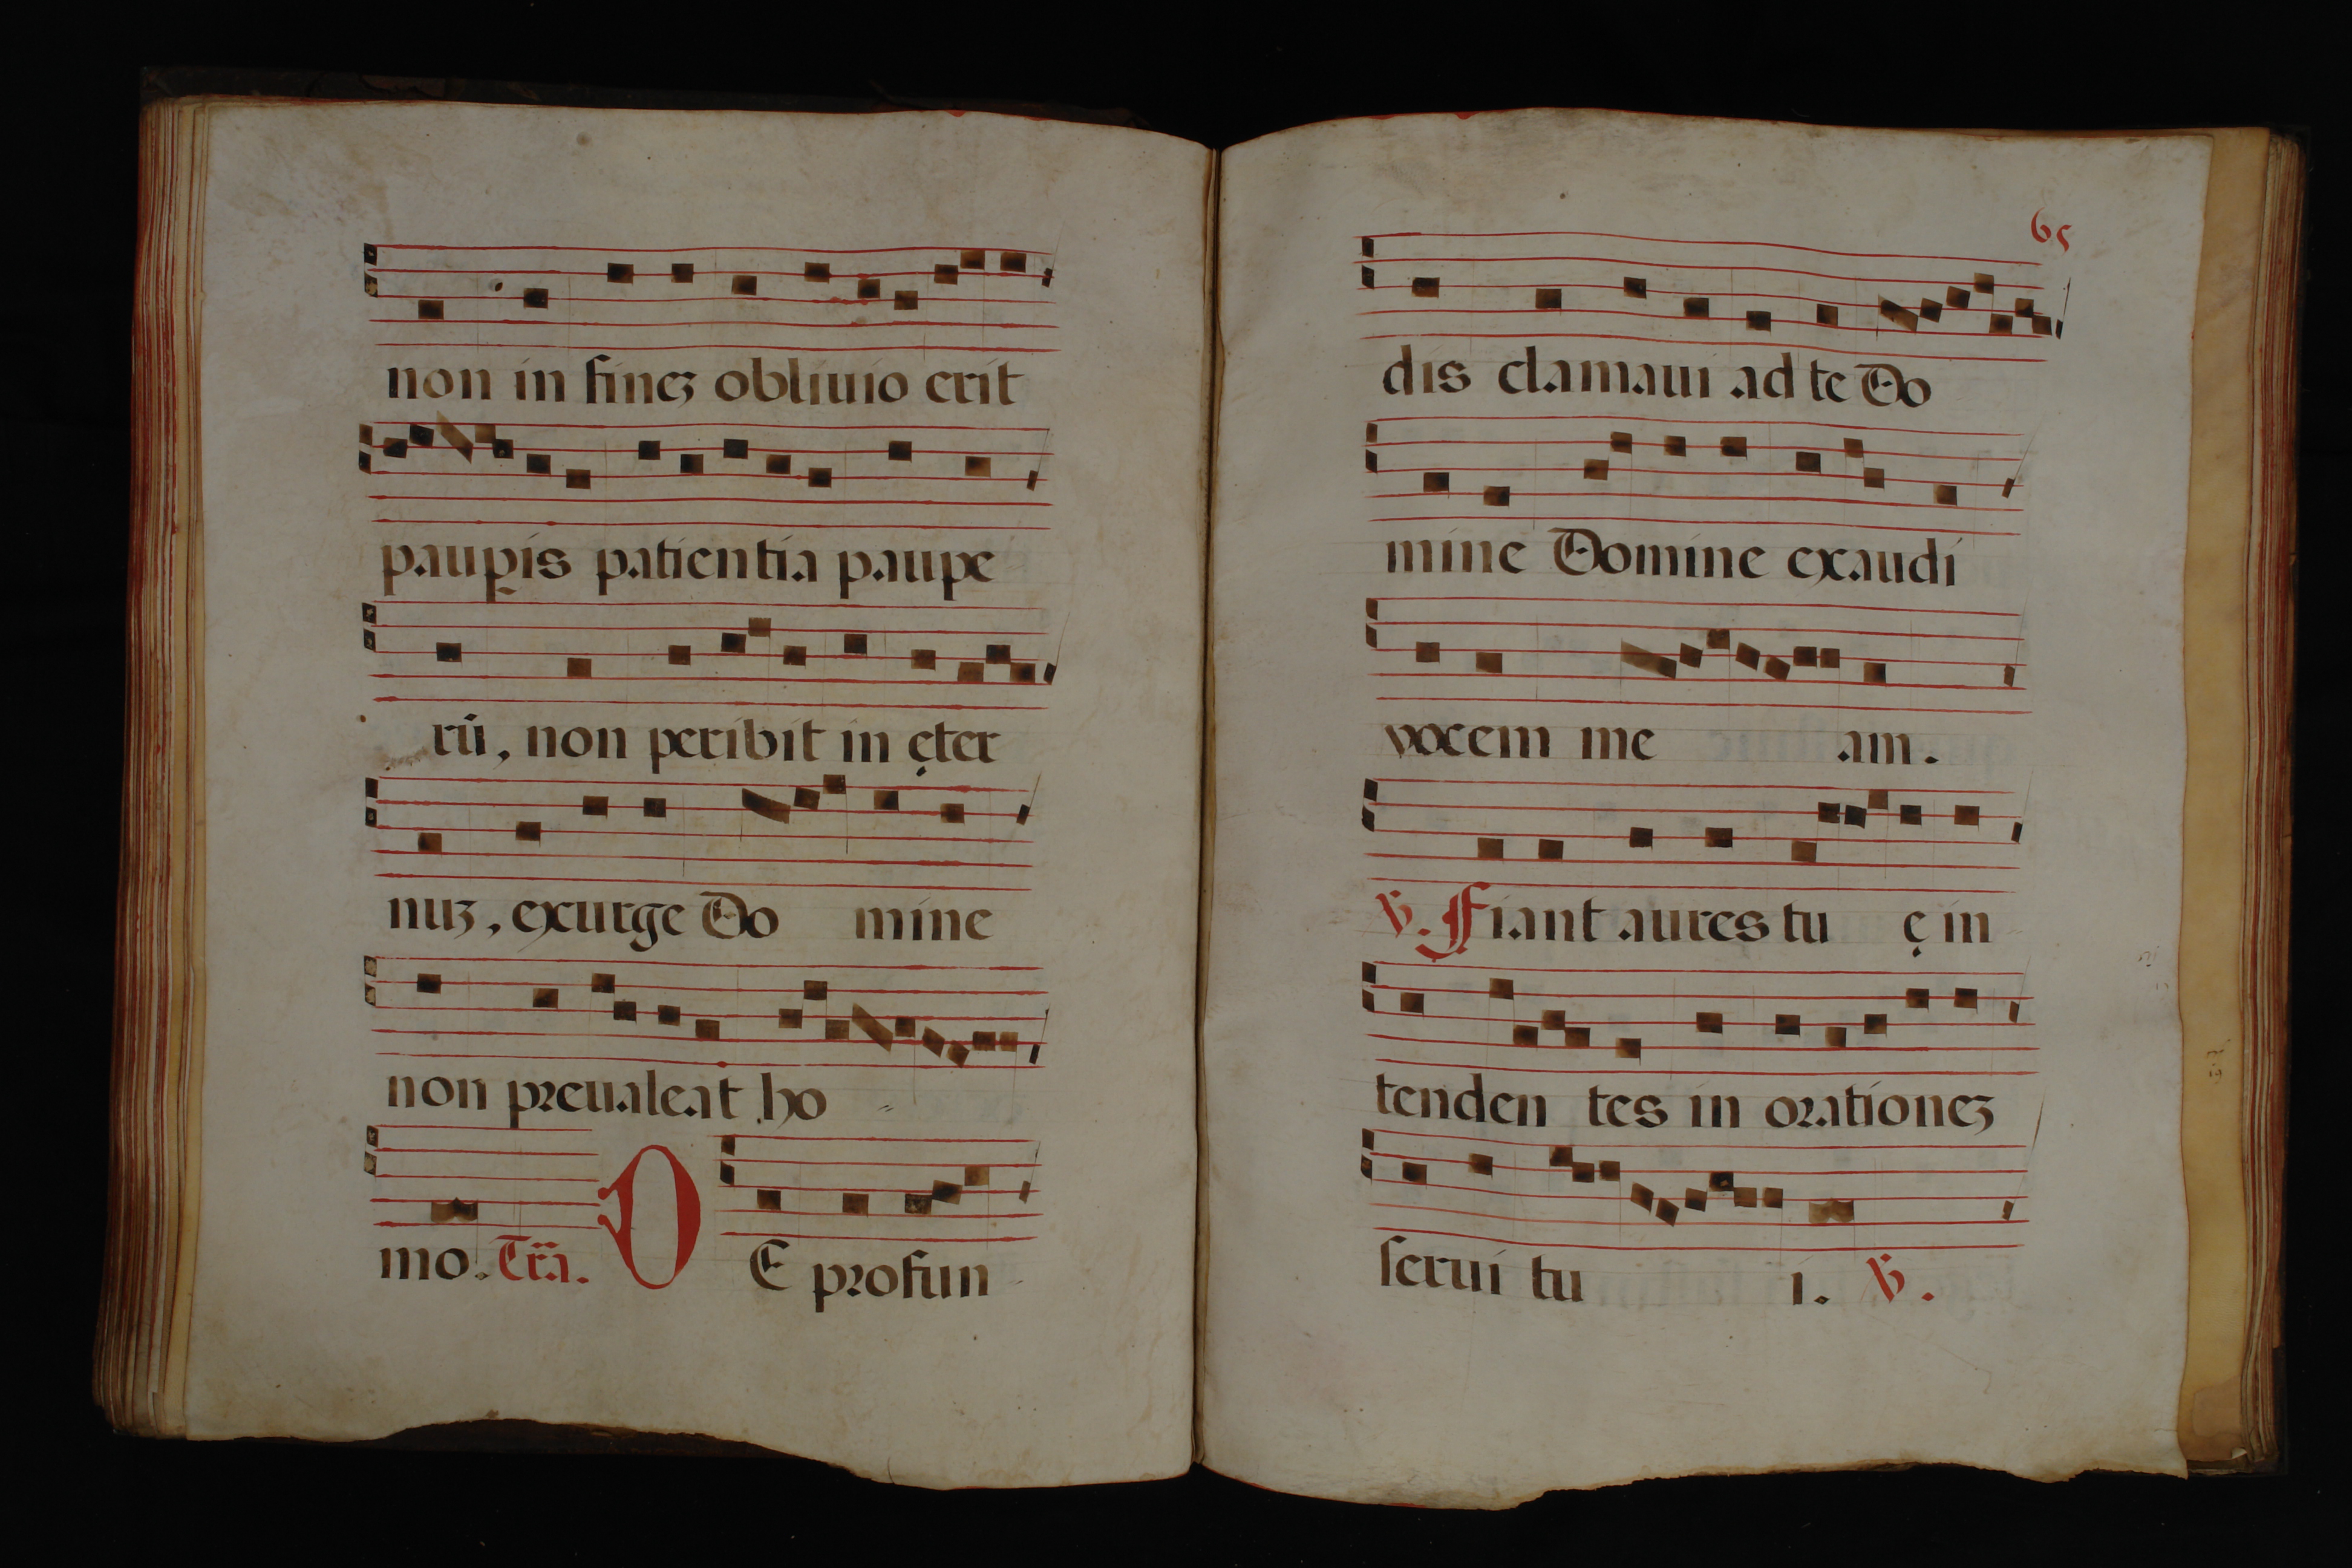 non in fineꝫ obliuio erit
paup̱is patientia paupe
rū, non peribit in ęter
nuꝫ, exurge Do mine
non preualeat ho
mo. Tra. D E profun
65
dis clamaui ad te Do
mine Domine exaudi
vocem me am.
℣. Fiant aures tu ę in
tenden tes in orationeꝫ
ſerui tu i. ℣.